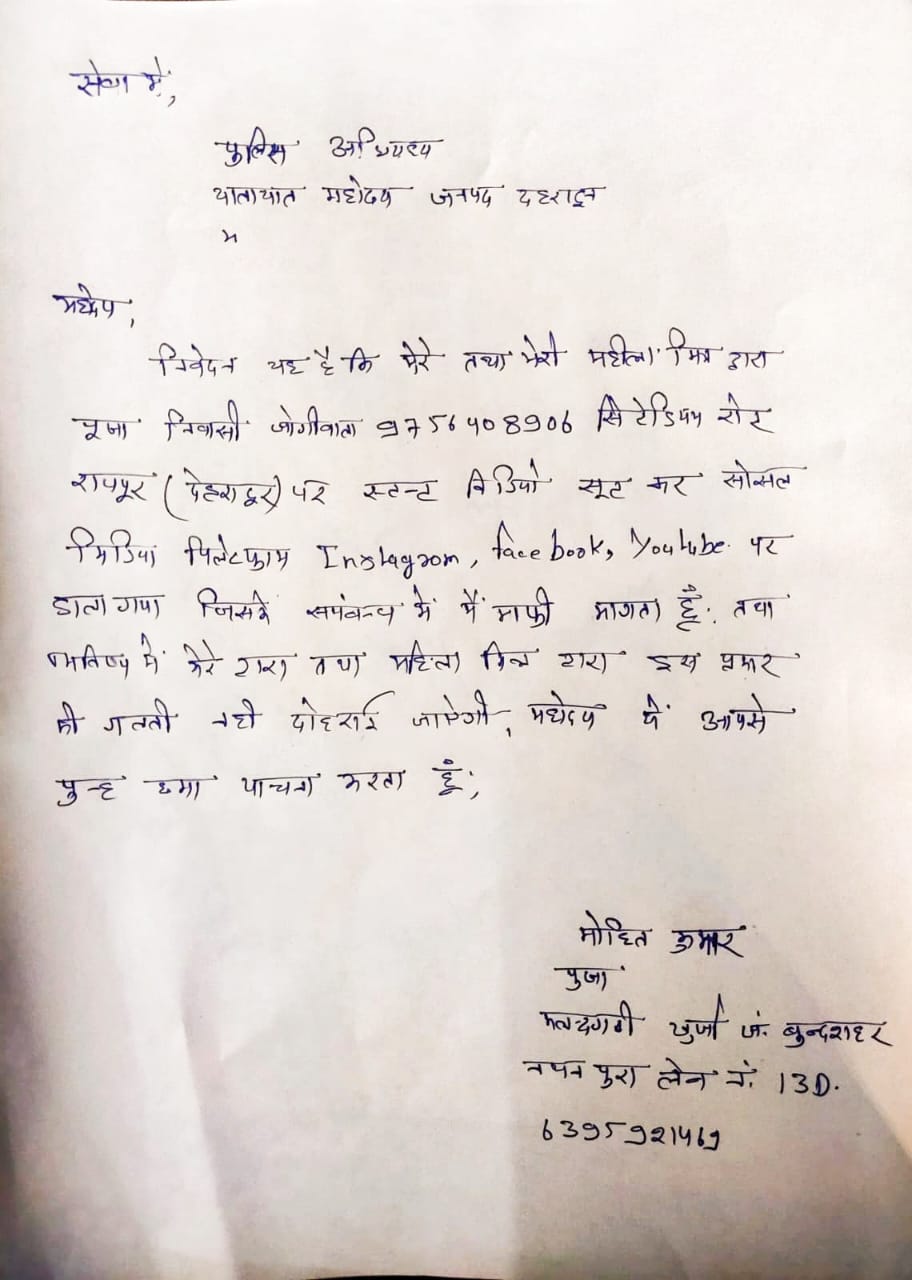 सेवा में,
पुलिस अधिक्षक
यातायात महोदय जनपद देहरादून
म
महोदय,
निवेदन यह है कि मेरे तथा मेरी महीला मित्र द्वारा
पूजा निवासी जोगीवाला 9756408906 सिटेडियम रोड
रायपूर (देहरादून) पर स्टन्ट विडियो सूट कर सोसल
मिडिया पिलेटफाम Instagrom, face book, Youtube पर
डाला गया जिसके सम्बन्ध में मैं माफी मागता हूँ. तथा
भविष्य में मेरे द्वारा तथा महिला मित्र द्वारा इस प्रकार
की गलती नही दोहराई जाऐगी, महोदय में आपसे
पुन्ह छमा याचना करता हूं;
मोहित कुमार
पुजा
खुर्जा जं. बुन्दशहर
नयन पुरा लेन नं. 13D.
6395921469